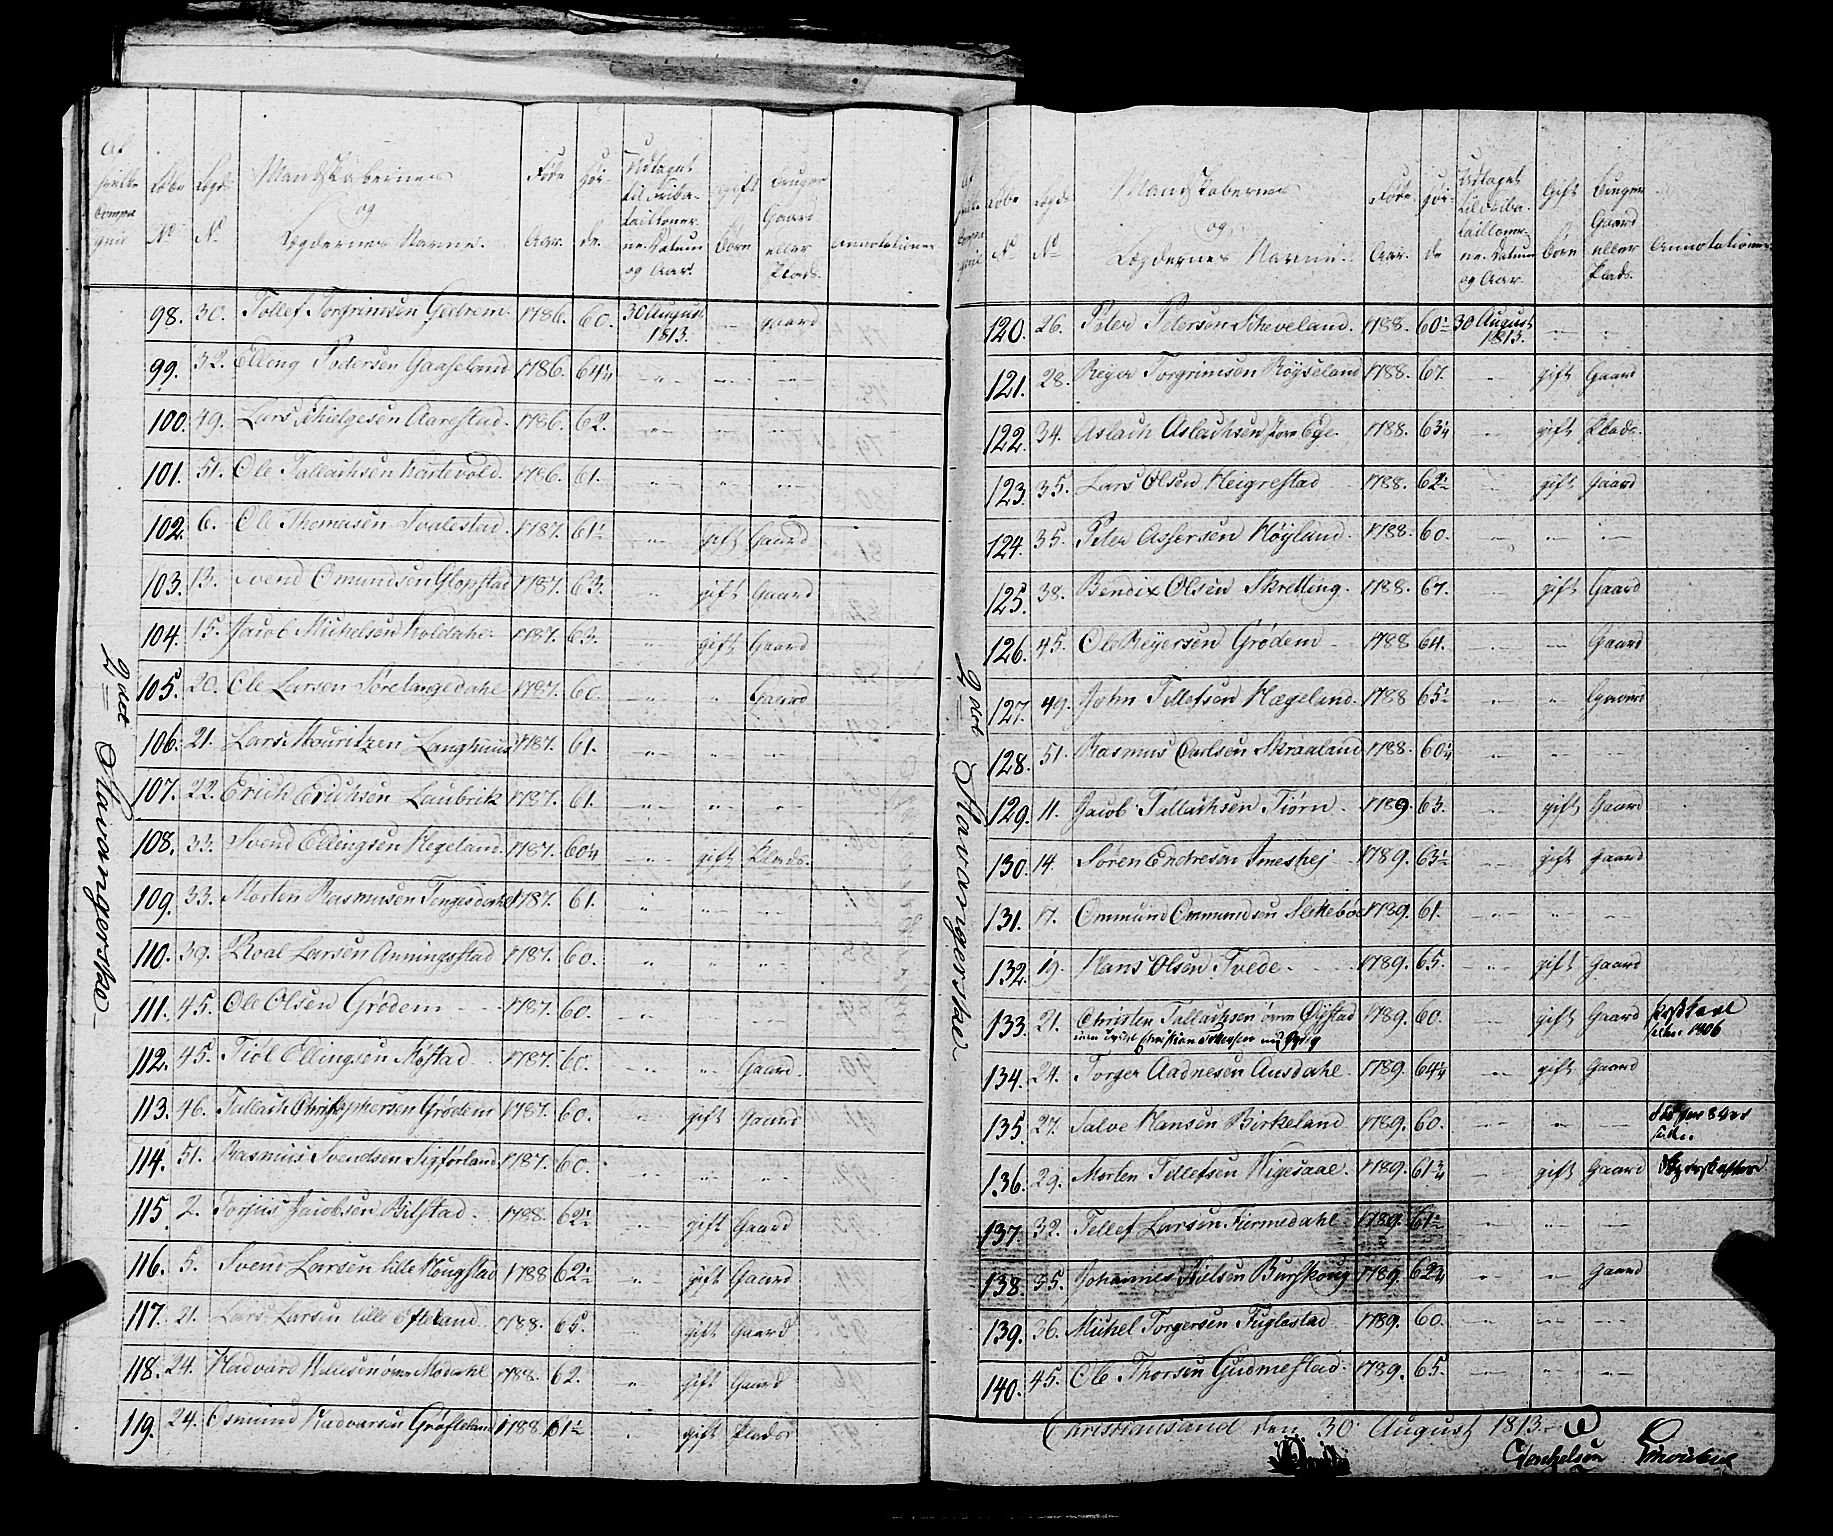 Løbe No Lægds No Mandskabernes og Lægdernes Navne. Føde Aar. Høi- de. Udtaget til Friba- taillioner- ne. Datum og Aar. Gift Børn Bruger Gaard eller Plads. Annotationer
2det Stavangerske
98. 30. Tollef Torgrimsen Gedrem. 1786. 60. 30 August 1813. gaard
99. 32. Elling Pedersen Gaaseland 1786. 64¼
100. 49. Lars Thielgesen Aarestad. 1786. 62.
101. 51. Ole Tallachsen Kartevold 1786. 61.
102. 6. Ole Thomasen Svalestad. 1787. 61½ gift Gaard
103. 13. Svend Omundsen Glopstad 1787. 63. gift Gaard
104. 15. Jacob Michelsen Koldahl. 1787. 63. gift Gaard
105. 20. Ole Larsen Søre Langedahl 1787. 60. Gaard
106. 21. Lars Mouritzen Langhuus 1787. 61.
107. 22. Erich Erichsen Laubrik 1787. 61.
108. 33. Svend Ellingsen Hegeland 1787. 60¼ gift Plads.
109. 33. Morten Rasmusen Tengesdahl 1787. 61.
110. 39. Roal Larsen Anningstad 1787. 60.
111. 45. Ole Olsen Grødem 1787. 60.
112. 45. Tiøl Ellingsen Møstad 1787. 60. Gaard.
113. 46. Tallach Christophersen Grødem 1787. 60. gift Gaard
114. 51. Rasmus Svendsen Sigførland 1787. 60.
115. 2. Torjus Jacobsen Bilstad. 1788. 62½ gift Gaard
116. 5. Svend Larsen lille Hougstad 1788 62½ gift Gaard
117. 21. Lars Larsen lille Efteland 1788. 65. gift Gaard
118. 24. Hadvard Nilesen øvre Mødahl 1788. 62. gift Gaard
119. 24. Osmund Hadvarsen Grøfteland 1788 61½ gift Plads
Løbe No Lægds No Mandskabernes og Lægdernes Navne. Føde Aar. Høi- de Udtaget til Friba- taillioner- ne. Datum og Aar. Gift Børn Bruger Gaard eller Plads. Annotationer
2det Stavangerske
120. 26. Peter Petersen Scheveland. 1788. 60½ 30 August 1813.
121. 28. Reyer Torgrimsen Røyseland 1788. 67. gift Gaard
122. 34. Aslach Aslachsen store Ege 1788. 63¼ gift Plads.
123. 35. Lars Olsen Heigrestad 1788. 62½ gift Gaard
124. 35. Peter Assersen Høyland. 1788. 60.
125. 38. Bendix Olsen Skretting. 1788. 67. gift Gaard
126. 45. Ole Reyersen Grødem 1788 64. Gaard
127. 49. John Tellefsen Hægeland. 1788 65½ Gaard
128. 51. Rasmus Carlsen Skraaland 1788. 60¼
129. 11. Jacob Tallachsen Tiørn 1789. 63. gift Gaard
130. 14. Søren Endresen Imeshej 1789. 63½ gift Gaard
131. 17. Ommund Ommundsen Slettebøe 1789. 61.
132. 19. Hans Olsen Tvede 1789. 65. gift Gaard
133. 21. Christen Tallachsen øvre Øystad 1789. 60. gift Gaard siden 1806
134. 24. Torger Aadnesen Ausdahl. 1789. 64¼ gift
135. 27. Salve Hansen Birkeland. 1789. 60.
136. 29. Morten Tellefsen Wigesaae. 1789. 61¾ gift Gaard
137. 32. Tellef Larsen Furmedahl 1789. 61½
138. 35. Johannes Nielsen Burskoug 1789. 62¾ Gaard
139. 36. Michel Torgersen Fuglestad 1789. 60.
140. 45. Ole Thorsen Gudmestad. 1789. 65.
Christiansand den 30 August 1813.